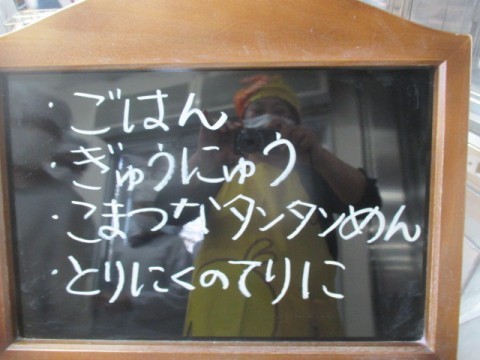 ・ごはん
・ぎゅうにゅう
・こまつなタンタンめん
・とりにくのてりに